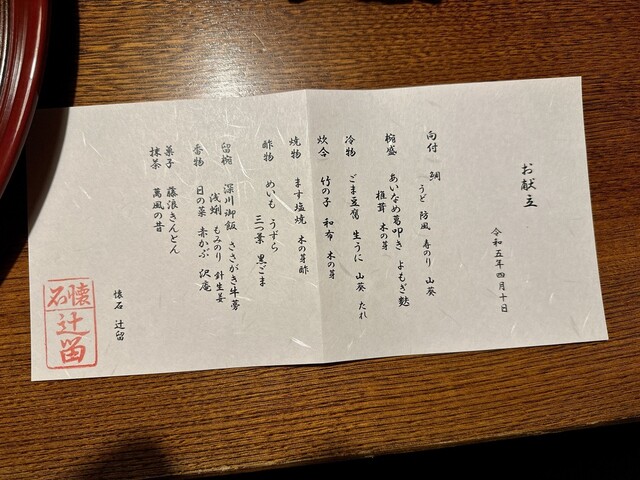 お献立
令和五年四月十日
向付 鯛
うど 防風 寿のり 山葵
椀盛 あいなめ葛叩き よもぎ麩
椎茸 木の芽
冷物 ごま豆腐 生うに 山葵 たれ
炊合 竹の子 和布 木の芽
焼物 ます塩焼 木の芽酢
酢物 めいも うずら
三つ葉 黒ごま
留椀 深川御飯 ささがき牛蒡
浅蜊 もみのり 針生姜
香物 日の菜 赤かぶ 沢庵
菓子 藤浪きんとん
抹茶 萬風の昔
懐石 辻留
懐石
辻留